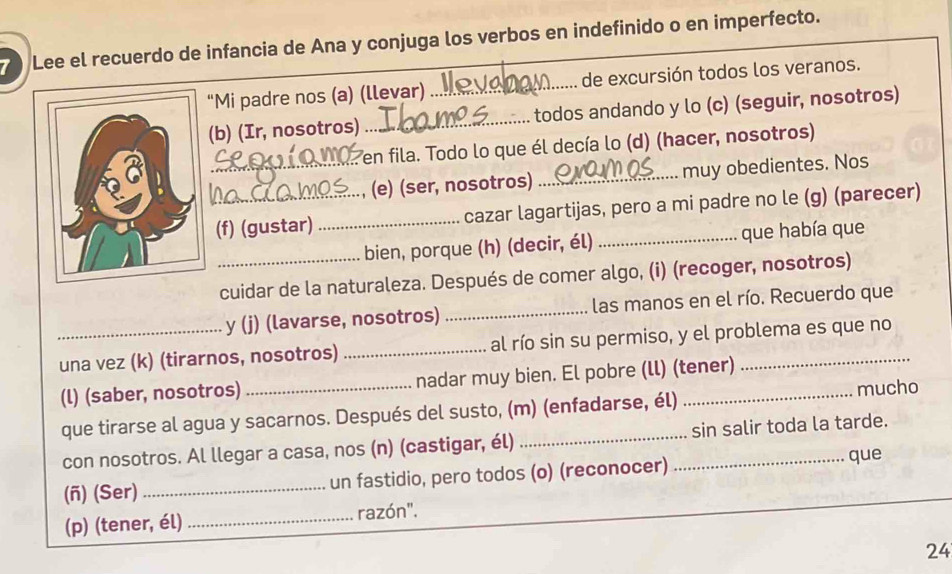 7 Lee el recuerdo de infancia de Ana y conjuga los verbos en indefinido o en imperfecto.
"Mi padre nos (a) (llevar) llevaban de excursión todos los veranos.
(b) (Ir, nosotros) Ibamos todos andando y lo (c) (seguir, nosotros)
seguíamos en fila. Todo lo que él decía lo (d) (hacer, nosotros)
hacíamos, (e) (ser, nosotros) eramos muy obedientes. Nos
(f) (gustar) cazar lagartijas, pero a mi padre no le (g) (parecer)
bien, porque (h) (decir, él) que había que
cuidar de la naturaleza. Después de comer algo, (i) (recoger, nosotros)
y (j) (lavarse, nosotros) las manos en el río. Recuerdo que
una vez (k) (tirarnos, nosotros) al río sin su permiso, y el problema es que no
(l) (saber, nosotros) nadar muy bien. El pobre (ll) (tener)
que tirarse al agua y sacarnos. Después del susto, (m) (enfadarse, él) mucho
con nosotros. Al llegar a casa, nos (n) (castigar, él) sin salir toda la tarde.
(ñ) (Ser) un fastidio, pero todos (o) (reconocer) que
(p) (tener, él) razón".
24